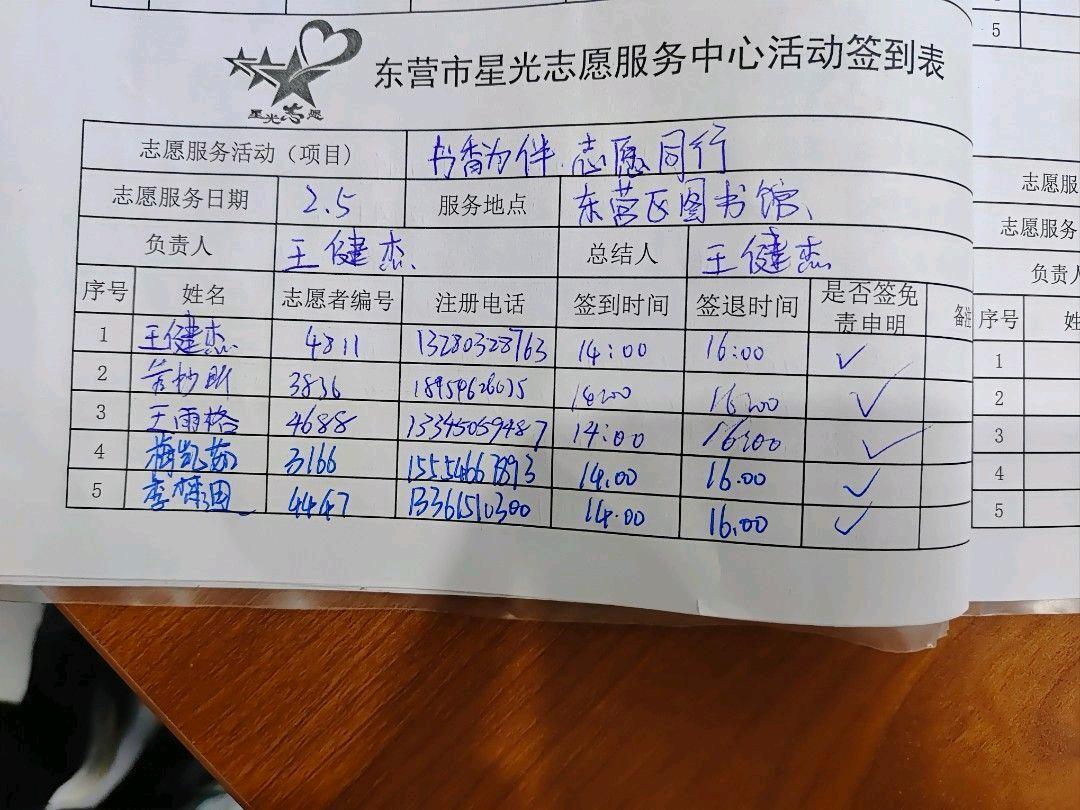 5
星光志愿
东营市星光志愿服务中心活动签到表
志愿服务活动（项目） 书香为伴 志愿同行
志愿服务日期 2.5 服务地点 东营区图书馆
负责人 王健杰 总结人 王健杰
序号 姓名 志愿者编号 注册电话 签到时间 签退时间 是否签免责申明 备注
1 王健杰 4811 13280328763 14:00 16:00 ✓
2 3836 14:00 16:00 ✓
3 王雨格 4688 13345059487 14:00 16:00 ✓
4 3166 14.00 16.00 ✓
5 4447 13361510300 14.00 16.00 ✓
志愿服
志愿服务
负责人
序号 姓
1
2
3
4
5